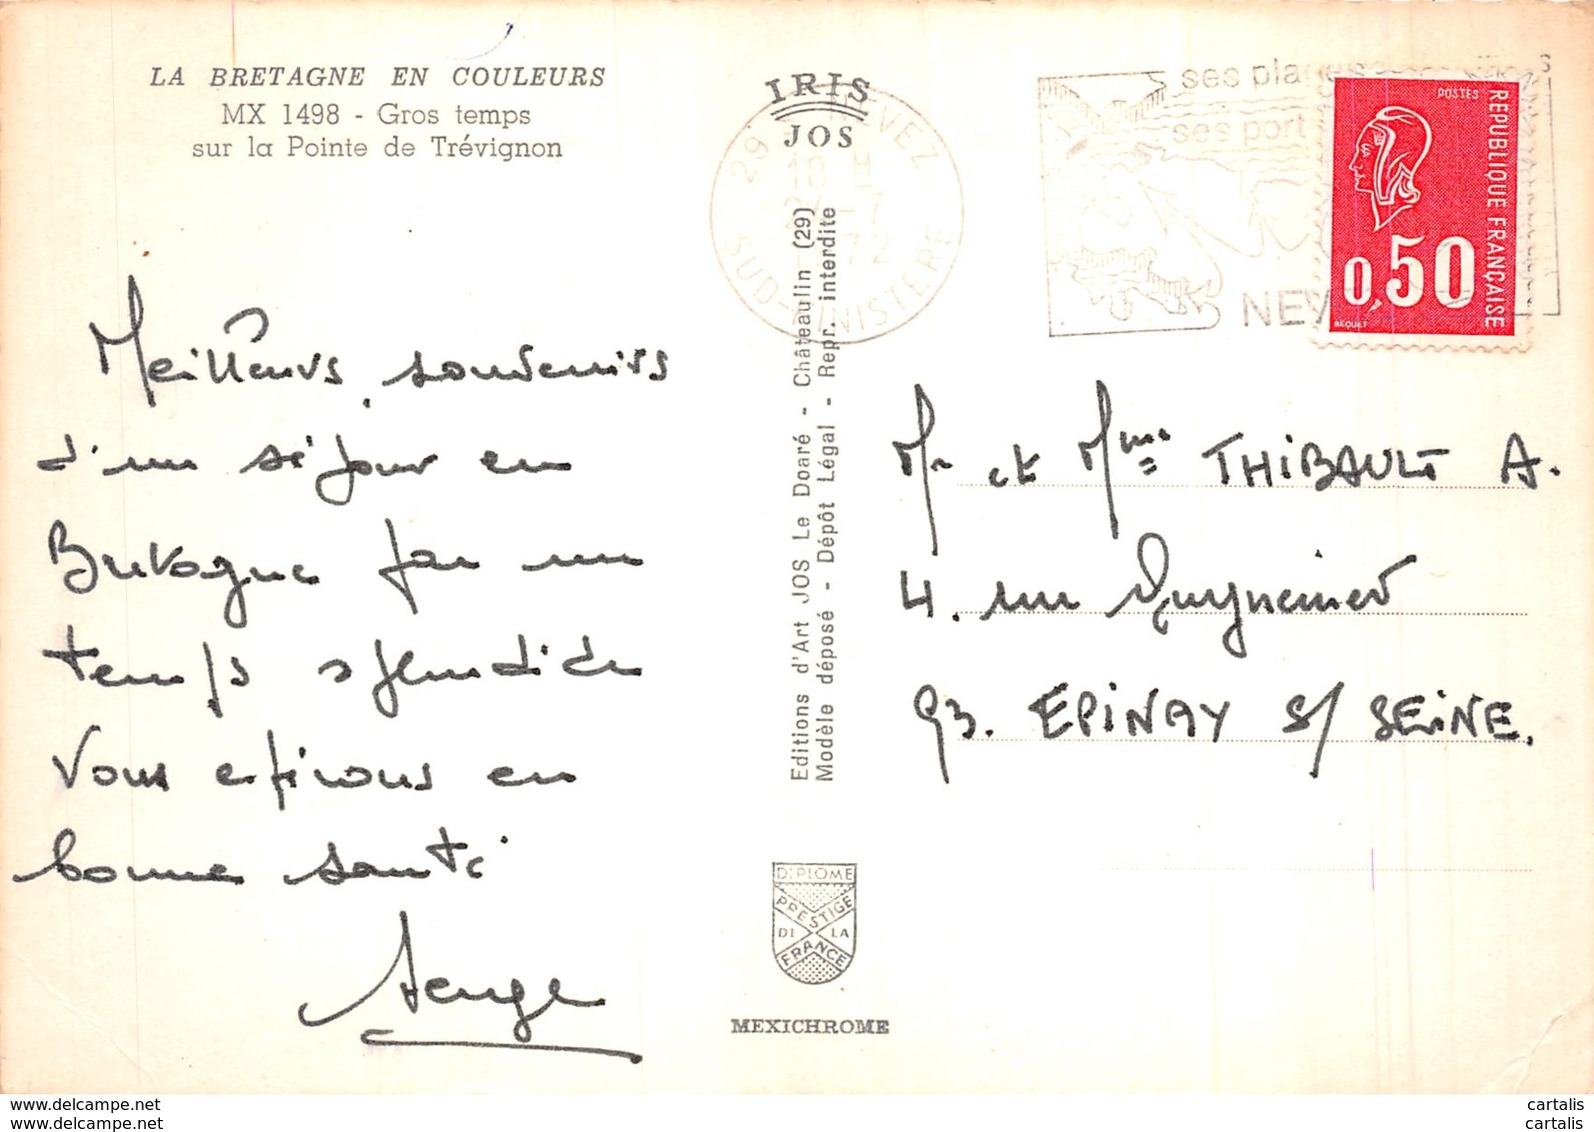 LA BRETAGNE EN COULEURS
MX 1498 - Gros temps
sur la Pointe de Trévignon
Meilleurs souvenirs
d'un séjour en
Bretagne par un
temps splendide
Vous espérons en
bonne santé
Serge
IRIS
JOS
Editions d'Art JOS Le Doaré - Châteaulin (29)
Modèle déposé - Dépôt Légal - Repr. interdite
DIPLOME
PRESTIGE
DE LA
FRANCE
MEXICHROME
29 NEVEZ
18 H
SUD-FINISTERE
ses plages
ses port
NEV
POSTES
REPUBLIQUE FRANÇAISE
0,50
BEQUET
Mr et Mme THIBAULT A.
4. rue
93. EPINAY S/ SEINE.
cartalis
www.delcampe.net
cartalis
www.delcampe.net